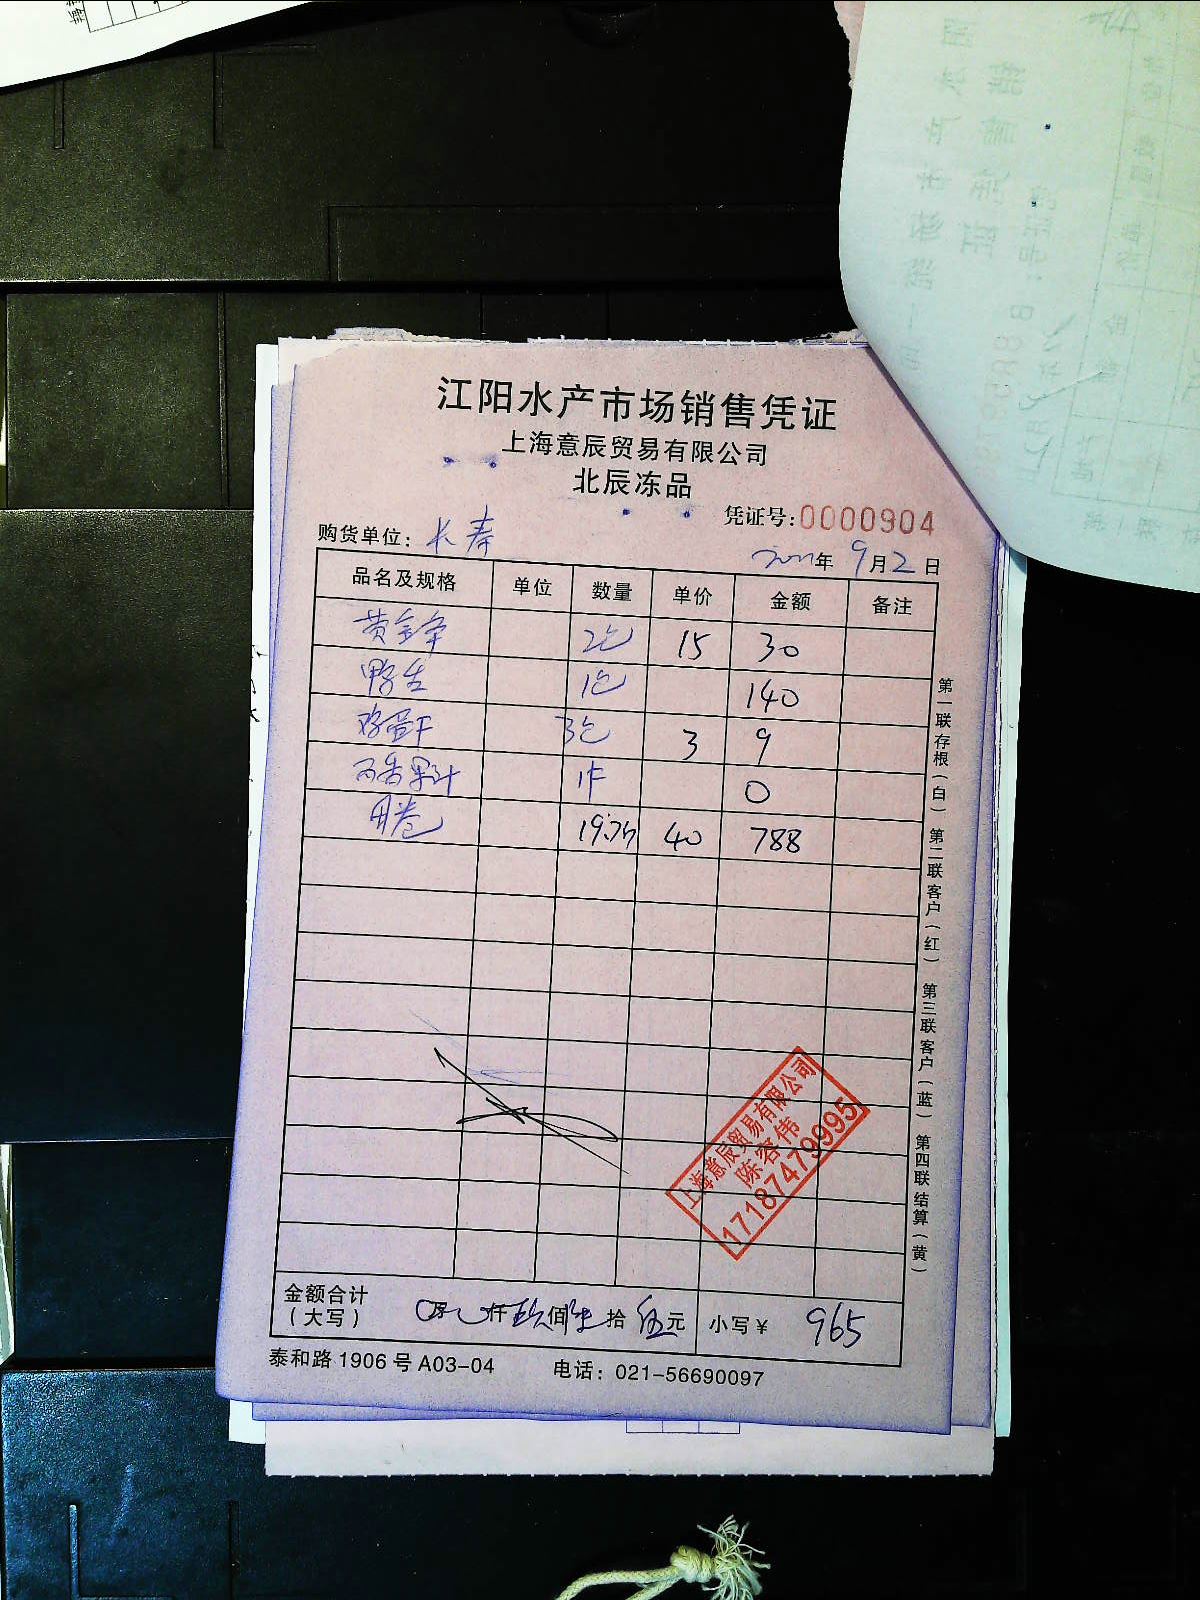 江阳水产市场销售凭证
上海意辰贸易有限公司
北辰冻品
凭证号:0000904
购货单位: 长寿
年 9月2日
品名及规格 单位 数量 单价 金额 备注
黄金 2包 15 30
鸭舌 1包 140
鸡蛋干 3包 3 9
百香果汁 1件 0
月卷 19.7 40 788
第一联存根(白) 第二联客户(红) 第三联客户(蓝) 第四联结算(黄)
上海意辰贸易有限公司
陈容伟
17187479995
金额合计
(大写) 万 仟 玖佰陆拾伍元 小写¥ 965
泰和路1906号A03-04 电话: 021-56690097